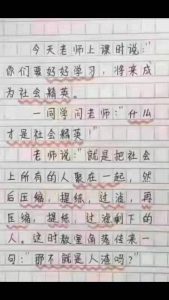 今天老师上课时说:“
你们要好好学习,将来成
为社会精英。
一同学问老师:“什么
才是社会精英!”
老师说:“就是把社会
上所有的人聚在一起,然
后压缩,提炼,过滤,再
压缩,提炼,过滤剩下的
人。这时教室角落传来一
句:“那不就是人渣吗?”